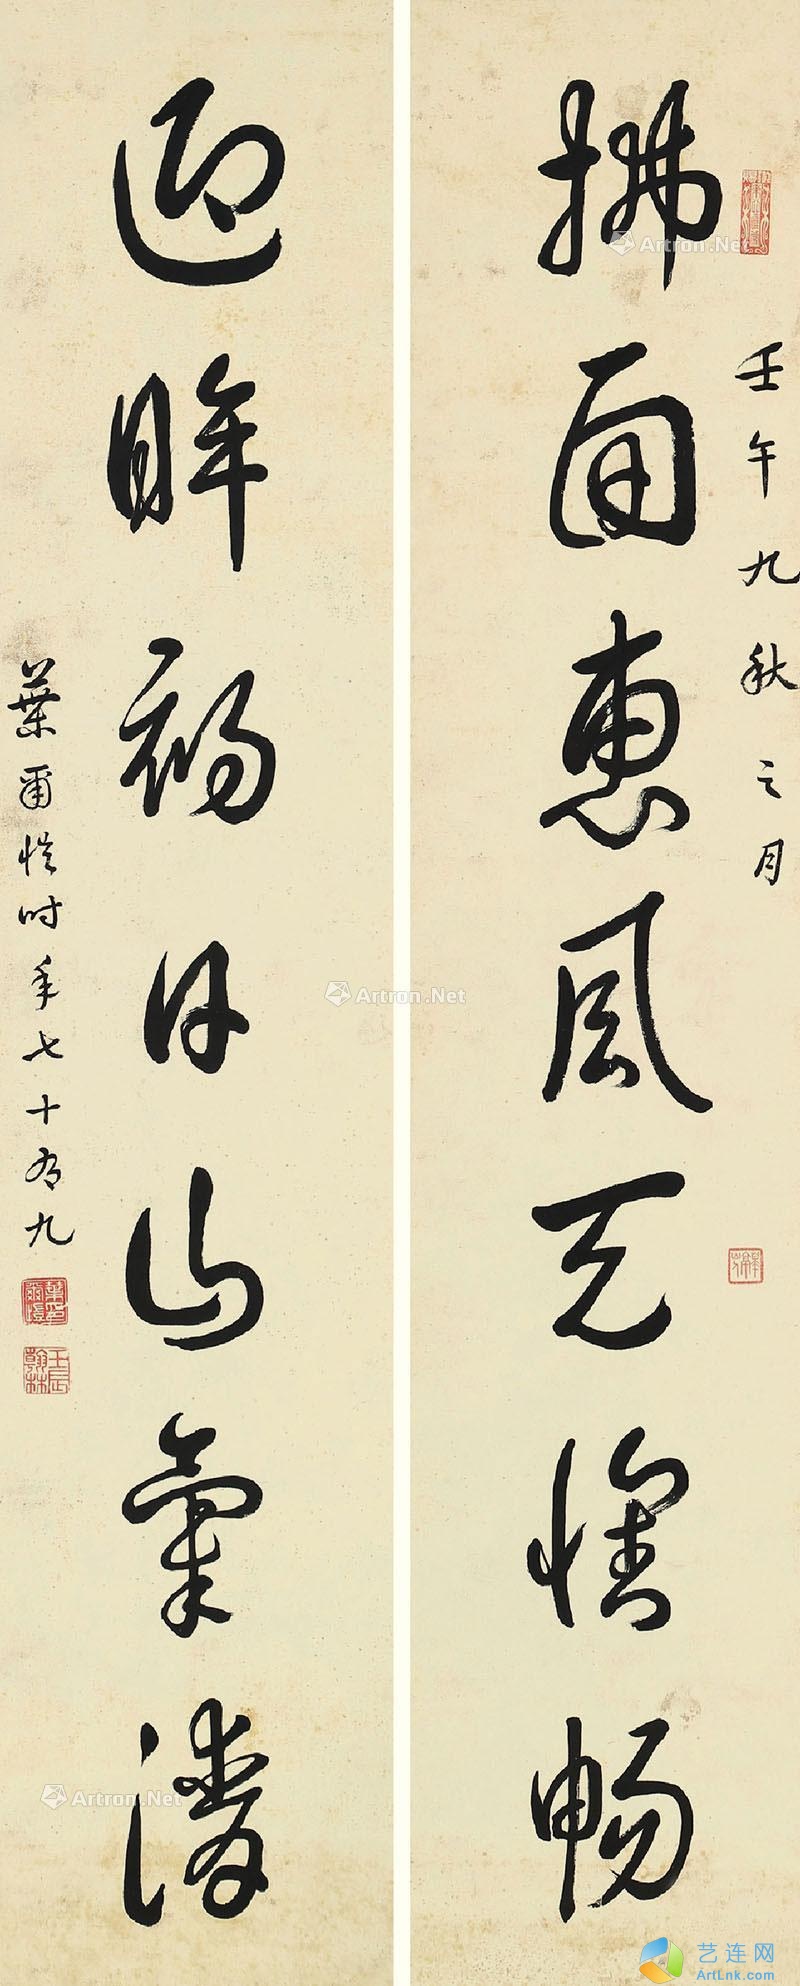 壬午九秋之月
拂面惠風天懷暢
迎眸初日山氣
葉爾愷時年七十有九
壬辰翰林
Artron.Net
Artron.Net
Artron.Net
艺连网
ArtLnk.com